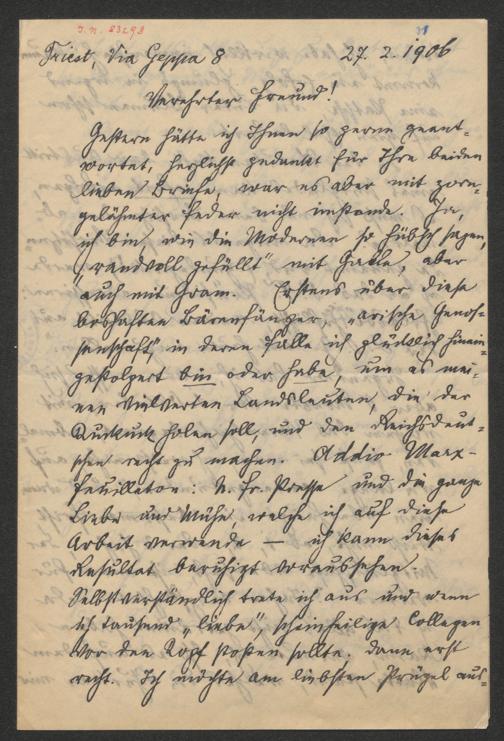 J. N. 83298
Triest, Via Geppa 8 27. 2. 1906
Verehrter Freund!
Gestern hätte ich Ihnen so gerne geant-
wortet, herzlichst gedankt für Ihre beiden
lieben Briefe, war es aber mit zorn-
gelähmter Feder nicht imstande. Ja,
ich bin, wie die Modernen so hübsch sagen,
"randvoll gefüllt" mit Galle, aber
auch mit Gram. Erstens über diese
boshaften Bärenfänger, "arische Genos-
senschaft", in deren Falle ich glücklich hinein-
gestolpert bin oder habe, um es mei-
nen vielwerten Landsleuten, die der
Kuckuck holen soll, und den Reichsdeut-
schen recht zu machen. Addio Marx-
Feuilleton: N. Fr. Presse und die ganze
Liebe und Mühe, welche ich auf diese
Arbeit verwende — ich kann dieses
Resultat beruhigt voraussehen.
Selbstverständlich trete ich aus und wenn
ich tausend "liebe", scheinheilige Collegen
vor den Kopf stoßen sollte. Dann erst
recht. Ich möchte am liebsten Prügel aus-